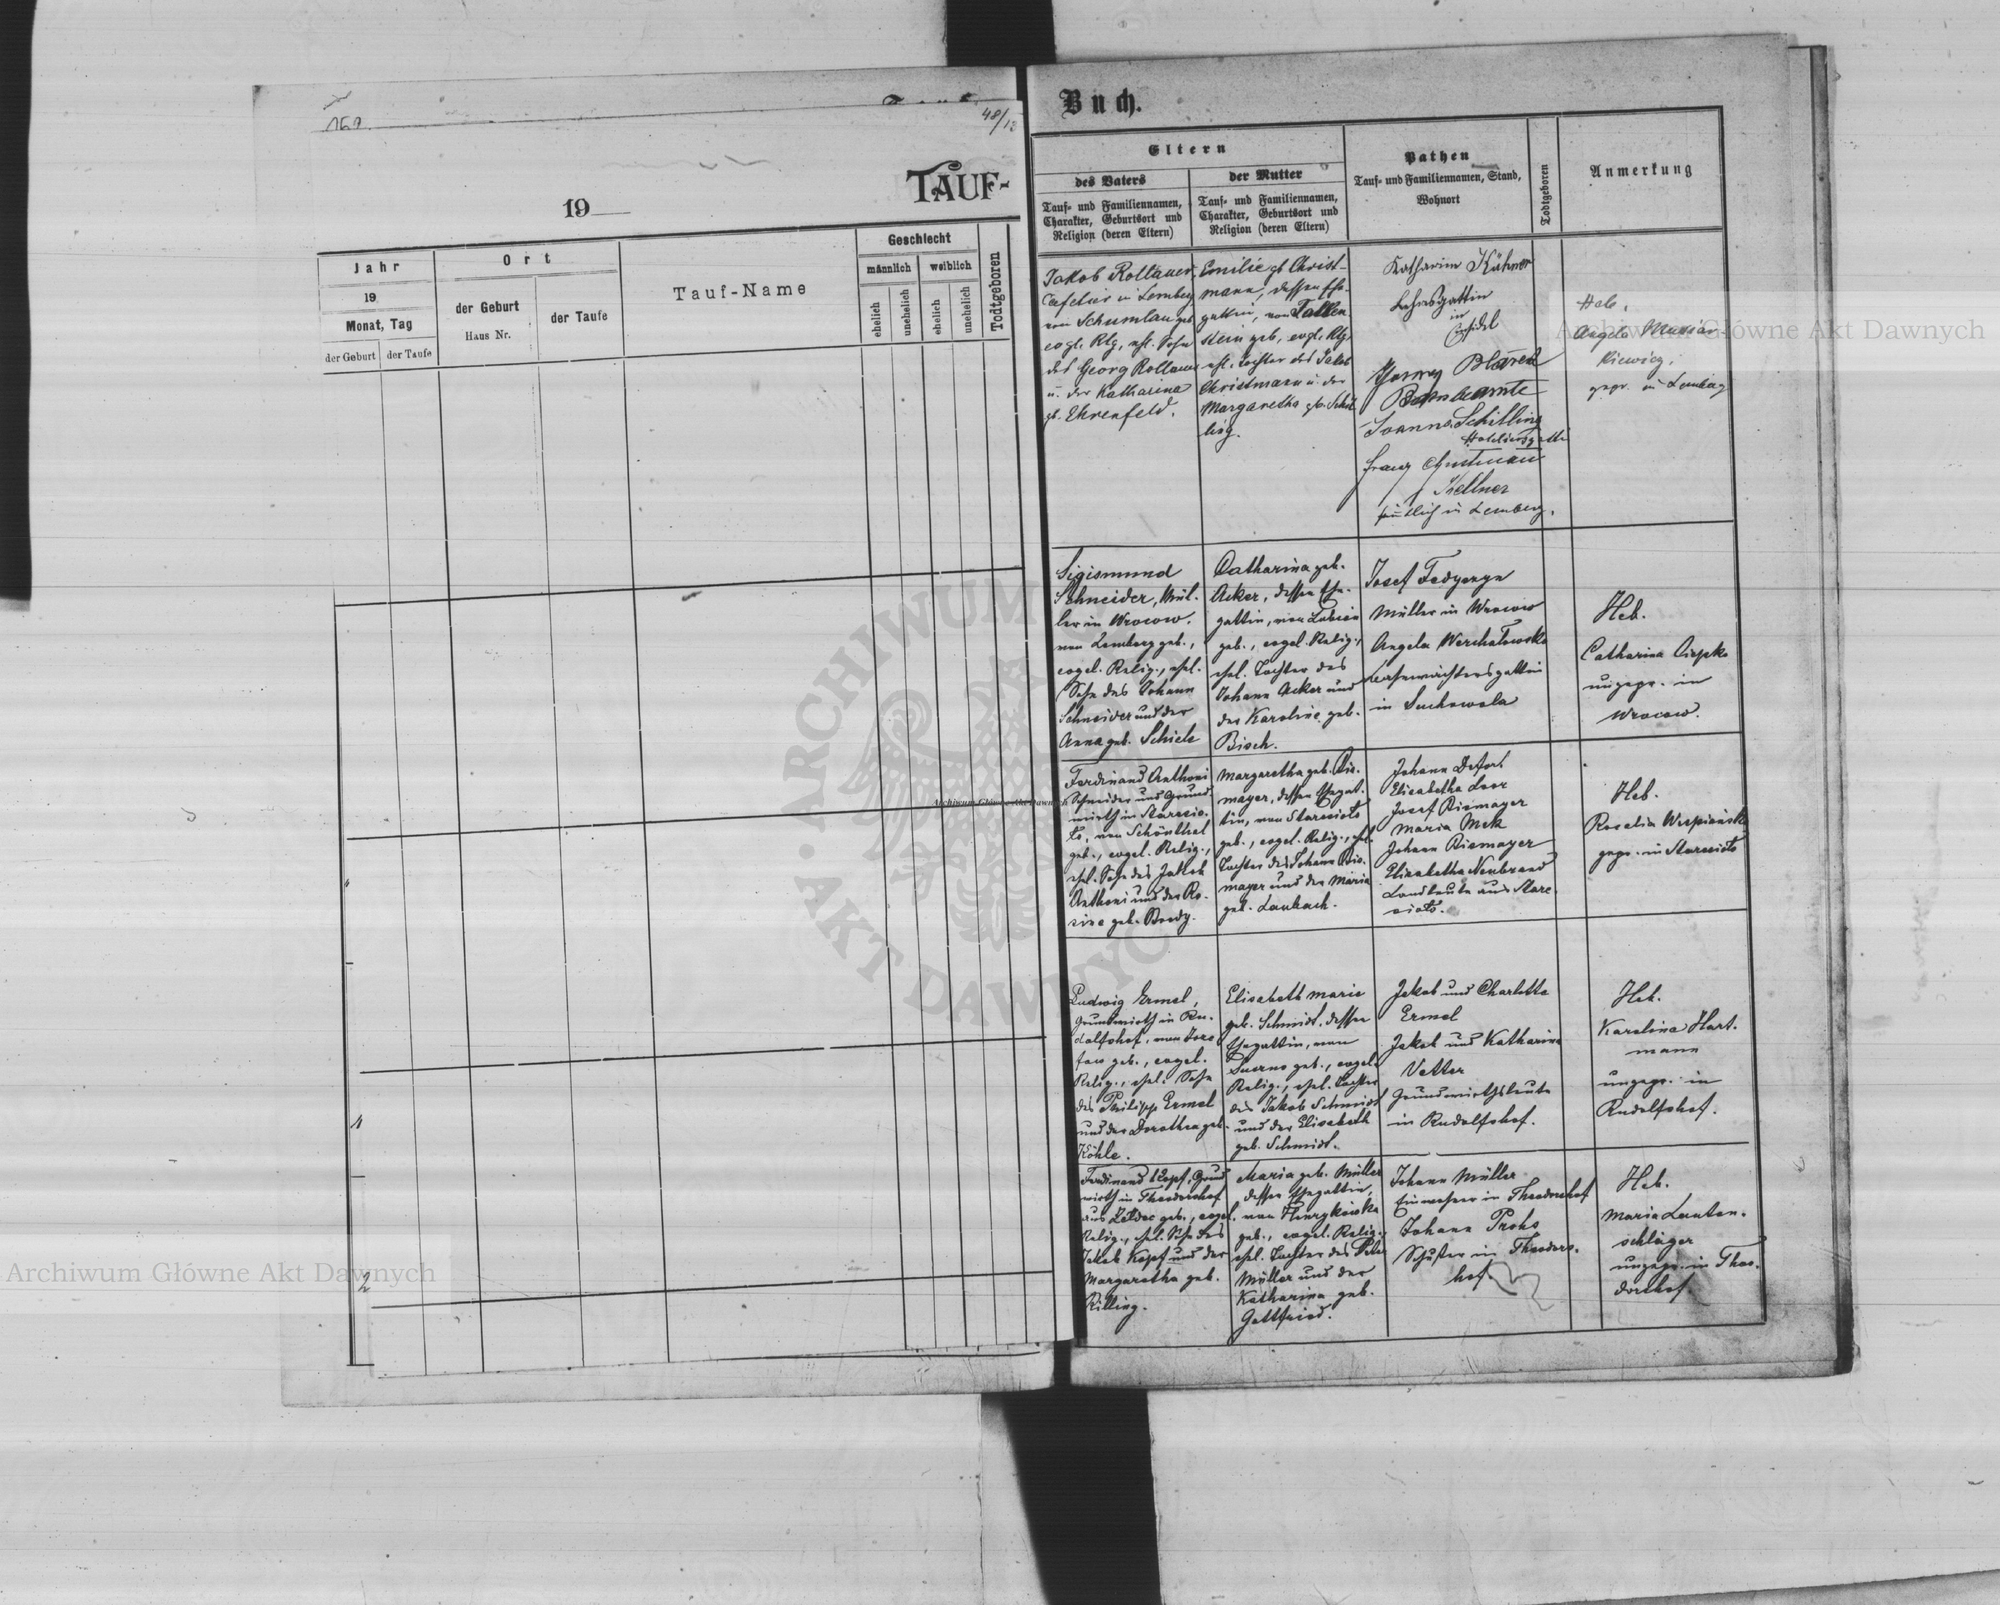 169.
48/13
TAUF-
19
Jahr
19
Monat, Tag
der Geburt
der Taufe
Ort
der Geburt
Haus Nr.
der Taufe
Tauf-Name
Geschlecht
männlich
weiblich
ehelich
unehelich
ehelich
unehelich
Todtgeboren
Buch.
Eltern
des Vaters
Tauf- und Familiennamen,
Charakter, Geburtsort und
Religion (deren Eltern)
der Mutter
Tauf- und Familiennamen,
Charakter, Geburtsort und
Religion (deren Eltern)
Pathen
Tauf- und Familiennamen, Stand,
Wohnort
Todtgeboren
Anmerkung
Jakob Rollauer,
in Lemberg
von Schumlau geb.
evgl. Rlg., ehl. Sohn
des Georg Rollauer
u. der Katharina
gb. Ehrenfeld.
Emilie gb Christ-
mann, dessen Ehe-
gattin, von Falken
stein geb., evgl. Rlg.,
ehl. Tochter des Jakob
Christmann u. der
Margaretha gb. Schil
ling.
Katharina Kühner
Lehrersgattin
in
Einsidel
Joanna Schilling
Franz Christmann
Kellner
sämtlich in Lemberg.
Heb.
Angela
gepr. in Lemberg
Sigismund
Schneider, Mül-
ler in Wrocow.
von Lemberg geb.,
evgel. Relig., ehel.
Sohn des Johann
Schneider und der
Anna geb. Schick
Catharina geb.
Acker, dessen Ehe-
gattin, von Lubien
geb., evgel. Relig.,
ehel. Tochter des
Johann Acker und
der Karoline geb.
Bisch.
Josef
Müller in Wrocow
Angela Werchatowska
Bahnwächtersgattin
in Suchowola
Heb.
Catharina Ciepko
ungepr. in
Wrocow.
Ferdinand Anthoni
Schneider und Grund
wirth in Staresio-
to, von Schönthal
geb., evgel. Relig.,
ehel. Sohn des Jakob
Anthoni und der Ro-
sine geb. Brody.
Margaretha geb. Rie-
mayer, dessen Ehegat-
tin, von Staresioto
geb., evgel. Relig., ehel.
Tochter des Johann Rie-
mayer und der Maria
geb. Laubach.
Johann
Elisabetha
Josef Riemayer
Maria Mek
Johann Riemayer
Elisabetha Neubrand
Landleute aus Stare
sioto.
Heb.
Rosalia
gepr. in Staresioto
Ludwig Ermel,
Grundwirth in Ru-
dolfshof, von
geb., evgel.
Relig., ehel. Sohn
des Philipp Ermel
und der Dorothea geb.
Köhle.
Elisabeth Marie
geb. Schmidt, dessen
Ehegattin, von
geb., evgel.
Relig., ehel. Tochter
des Jakob Schmidt
und der Elisabeth
geb. Schmidt.
Jakob und Charlotte
Ermel
Jakob und Katharina
Vetter
Grundwirthsleute
in Rudolfshof.
Heb.
Karolina Hart-
mann
ungepr. in
Rudolfshof.
Ferdinand Kopf, Grund
wirth in Theodorshof
aus geb., evgel.
Relig., ehel. Sohn des
Jakob Kopf und der
Margaretha geb.
Rilling.
Maria geb. Müller
dessen Ehegattin,
von
geb., evgel. Relig.,
ehel. Tochter des Peter
Müller und der
Katharina geb.
Gottfried.
Johann Müller
Einwohner in Theodorshof
Johann Prohs
Schuster in Theodors-
hof
Heb.
Maria Lauten-
schläger
ungepr. in Theo-
dorshof.
2
Archiwum Główne Akt Dawnych
Archiwum Główne Akt Dawnych
Archiwum Główne Akt Dawnych
ARCHIWUM
AKT DAWNYCH